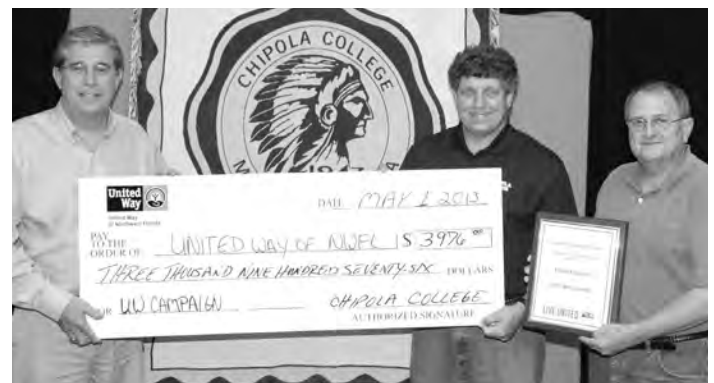 CHIPOLA COLLEGE
1947
United Way
United Way
of Northwest Florida
DATE MAY 1 2013
PAY TO THE ORDER OF UNITED WAY OF NWFL $ 3976 00
THREE THOUSAND NINE HUNDRED SEVENTY-SIX DOLLARS
UW CAMPAIGN CHIPOLA COLLEGE
AUTHORIZED SIGNATURE
LIVE UNITED